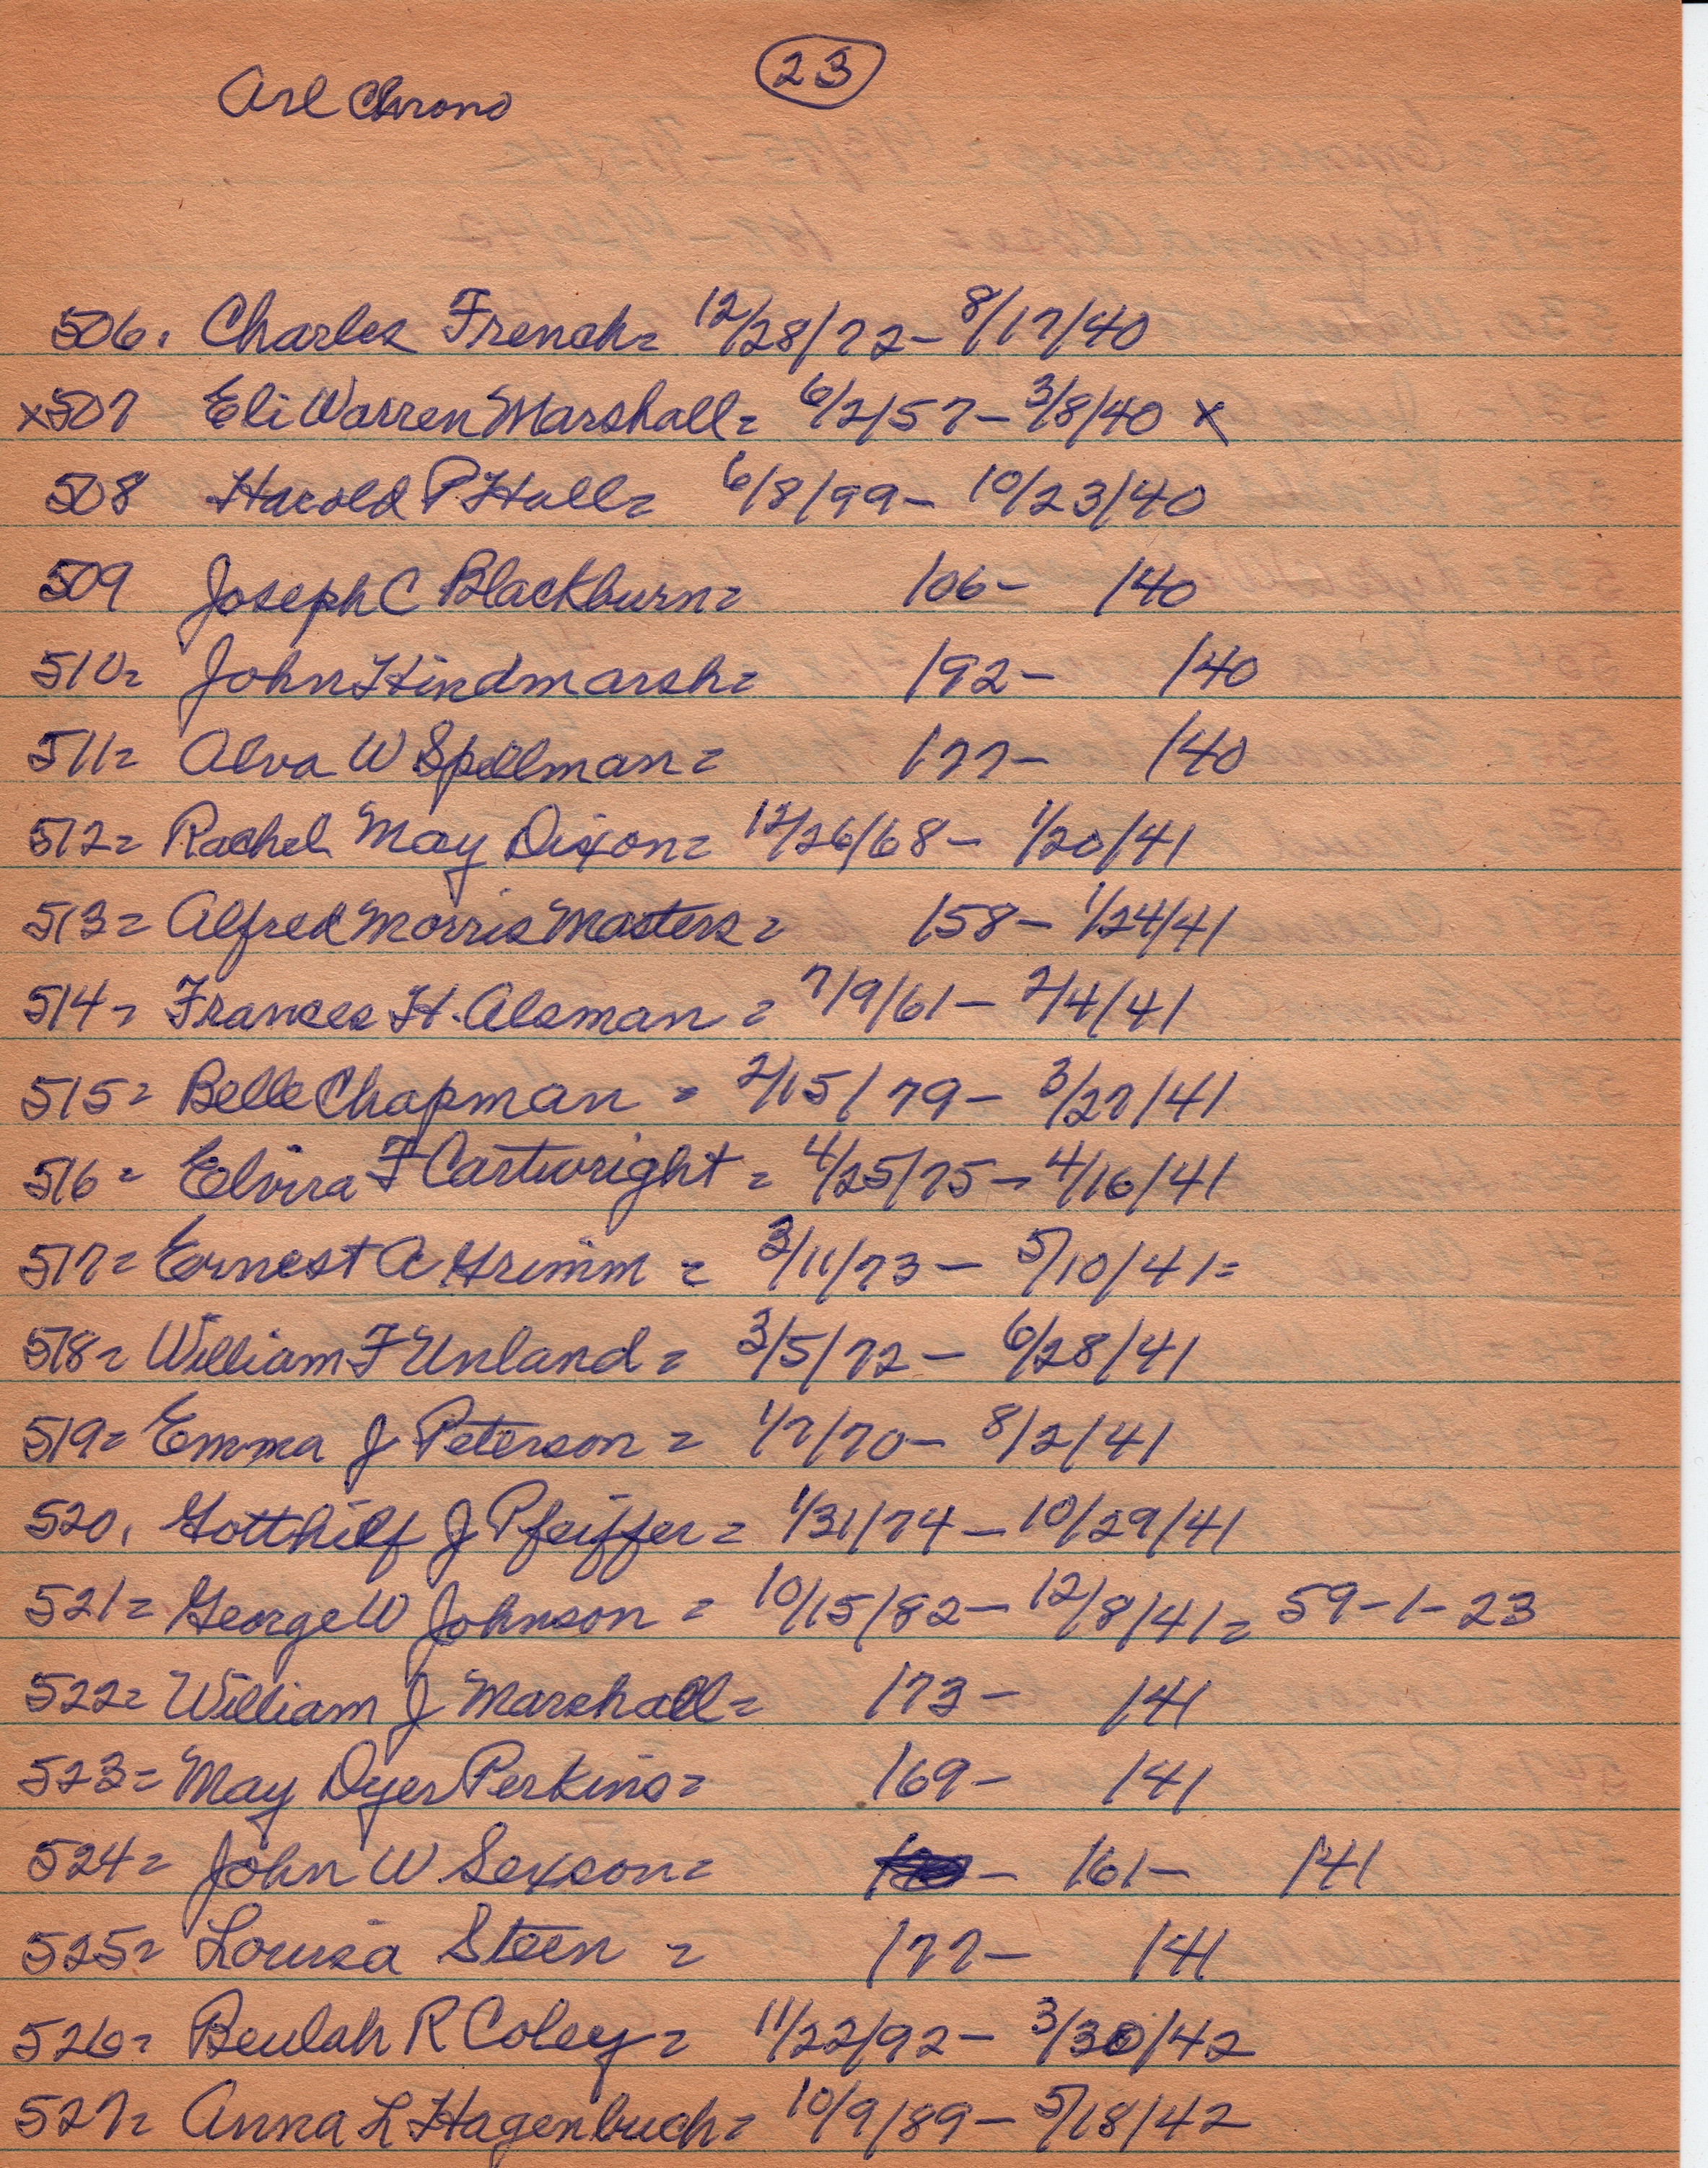 23
Arl Chrono
506. Charles French= 12/28/72- 8/17/40
x507 Eli Warren Marshall= 6/2/57- 3/8/40 x
508 Harold P Hall= 6/8/99- 10/23/40
509 Joseph C Blackburn= /06- /40
510= John Hindmarsh= /92- /40
511= Alva W Spellman= /77- /40
512= Rachel May Dixon= 12/26/68- 1/20/41
513= Alfred Morris Masters= /58- 1/24/41
514= Frances H. Alsman = 7/9/61- 2/4/41
515= Belle Chapman = 2/15/79- 3/27/41
516= Elvira F Cartwright = 4/25/75- 4/16/41
517= Ernest A Grimm = 3/11/73- 5/10/41=
518= William F Unland= 3/5/72- 6/28/41
519= Emma J Peterson= 1/7/70- 8/2/41
520. Gotthilf J Pfeiffer= 1/31/74- 10/29/41
521= George W Johnson = 10/15/82- 12/8/41= 59-1-23
522= William J Marshall= /73- /41
523= May Dyer Perkins= /69- /41
524= John W Sexson= - /61- /41
525= Louisa Steen = /77- /41
526= Beulah R Coley= 11/22/92- 3/30/42
527= Anna L Hagenbuch= 10/9/89- 5/18/42